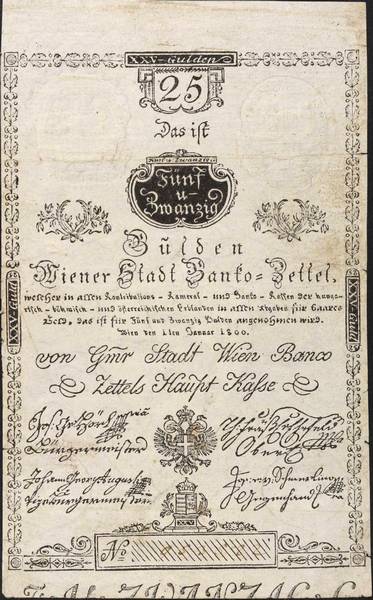 XXV-Gulden
25
Das ist
Fünf u. Zwanzig
Fünf
u.
Zwanzig
Gulden
Wiener Stadt Banko-Zettel,
welcher in allen Kontributions- Kameral- und Banko-Kassen der hunga-
risch- böhmisch- und österreichischen Erblanden in allen Abgaben für baares
Geld, das ist für Fünf und Zwanzig Gulden angenohmen wird.
Wien den 1ten Januar 1800.
XXV-Guld
XXV-Guld
von Gmr Stadt Wien Banco
Zettels Haupt Kasse
Jos. Ge. Hörl
Bürgermeister
Johann Georg Augusti
Vizebürgermeister
XXV
No
ZWANZIG